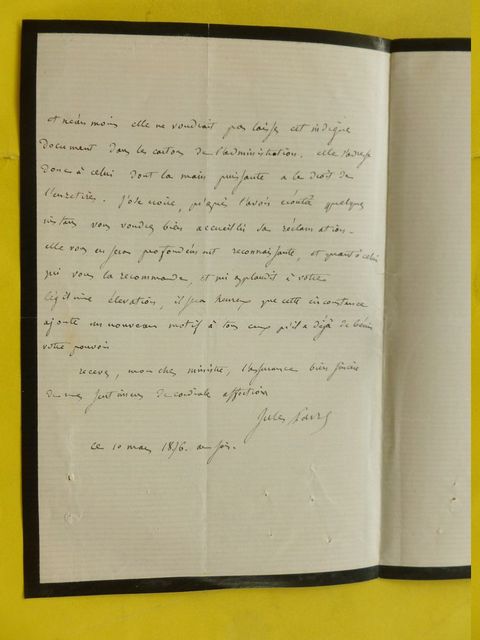 et néanmoins elle ne voudrait pas laisser cet indigne
Document dans les cartons de l'administration. elle s'adresse
Donc à celui dont la main puissante a le droit de
l'en retirer. J'ose croire, qu'après l'avoir écoutée quelques
instans vous voudrez bien accueillir sa réclamation.
elle vous en sera profondément reconnaissante, et quant à celui
qui vous la recommande, et qui applaudit à votre
légitime élévation, il sera heureux que cette circonstance
ajoute un nouveau motif à tous ceux qu'il a déjà de bénir
votre pouvoir
recevez, mon cher ministre, l'assurance bien sincère
de mes sentimens de cordiale affection
Jules Favre
ce 10 mars 1876. au soir.